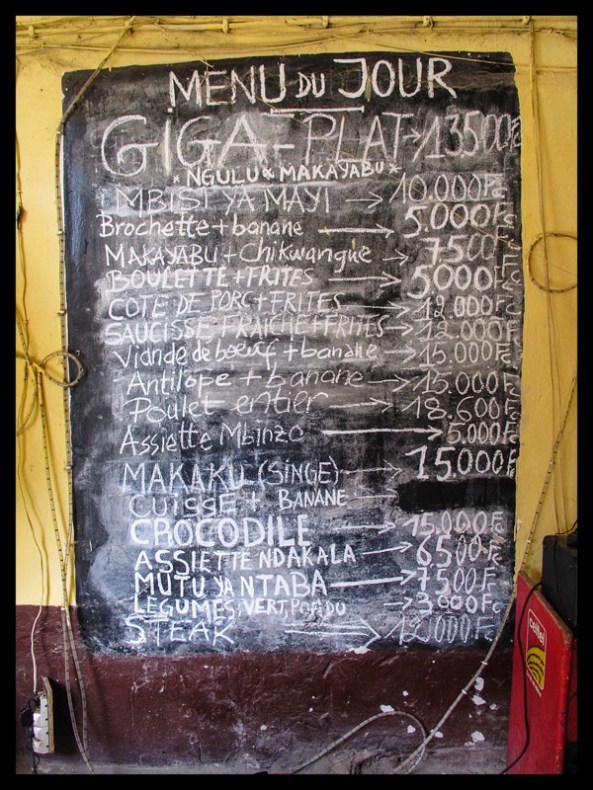 MENU DU JOUR
GIGA-PLAT → 13500Fc
* NGULU & MAKAYABU *
MBISI YA MAYI → 10.000Fc
Brochette + banane → 5.000Fc
MAKAYABU + Chikwangue → 7500Fc
BOULETTE + FRITES → 5000Fc
COTE DE PORC + FRITES → 12.000Fc
SAUCISSE FRAICHE + FRITES → 12.000Fc
Viande de boeuf + banane → 15.000Fc
Antilope + banane → 15.000Fc
Poulet entier → 18.600Fc
Assiette Mbinzo → 5.000Fc
MAKAKU (SINGE) → 15.000Fc
CUISSE + BANANE →
CROCODILE → 15.000Fc
ASSIETTE NDAKALA → 6500Fc
MUTU YA NTABA → 7500Fc
LEGUMES, VERT, → 3000Fc
STEAK → 12.000Fc
Celtel